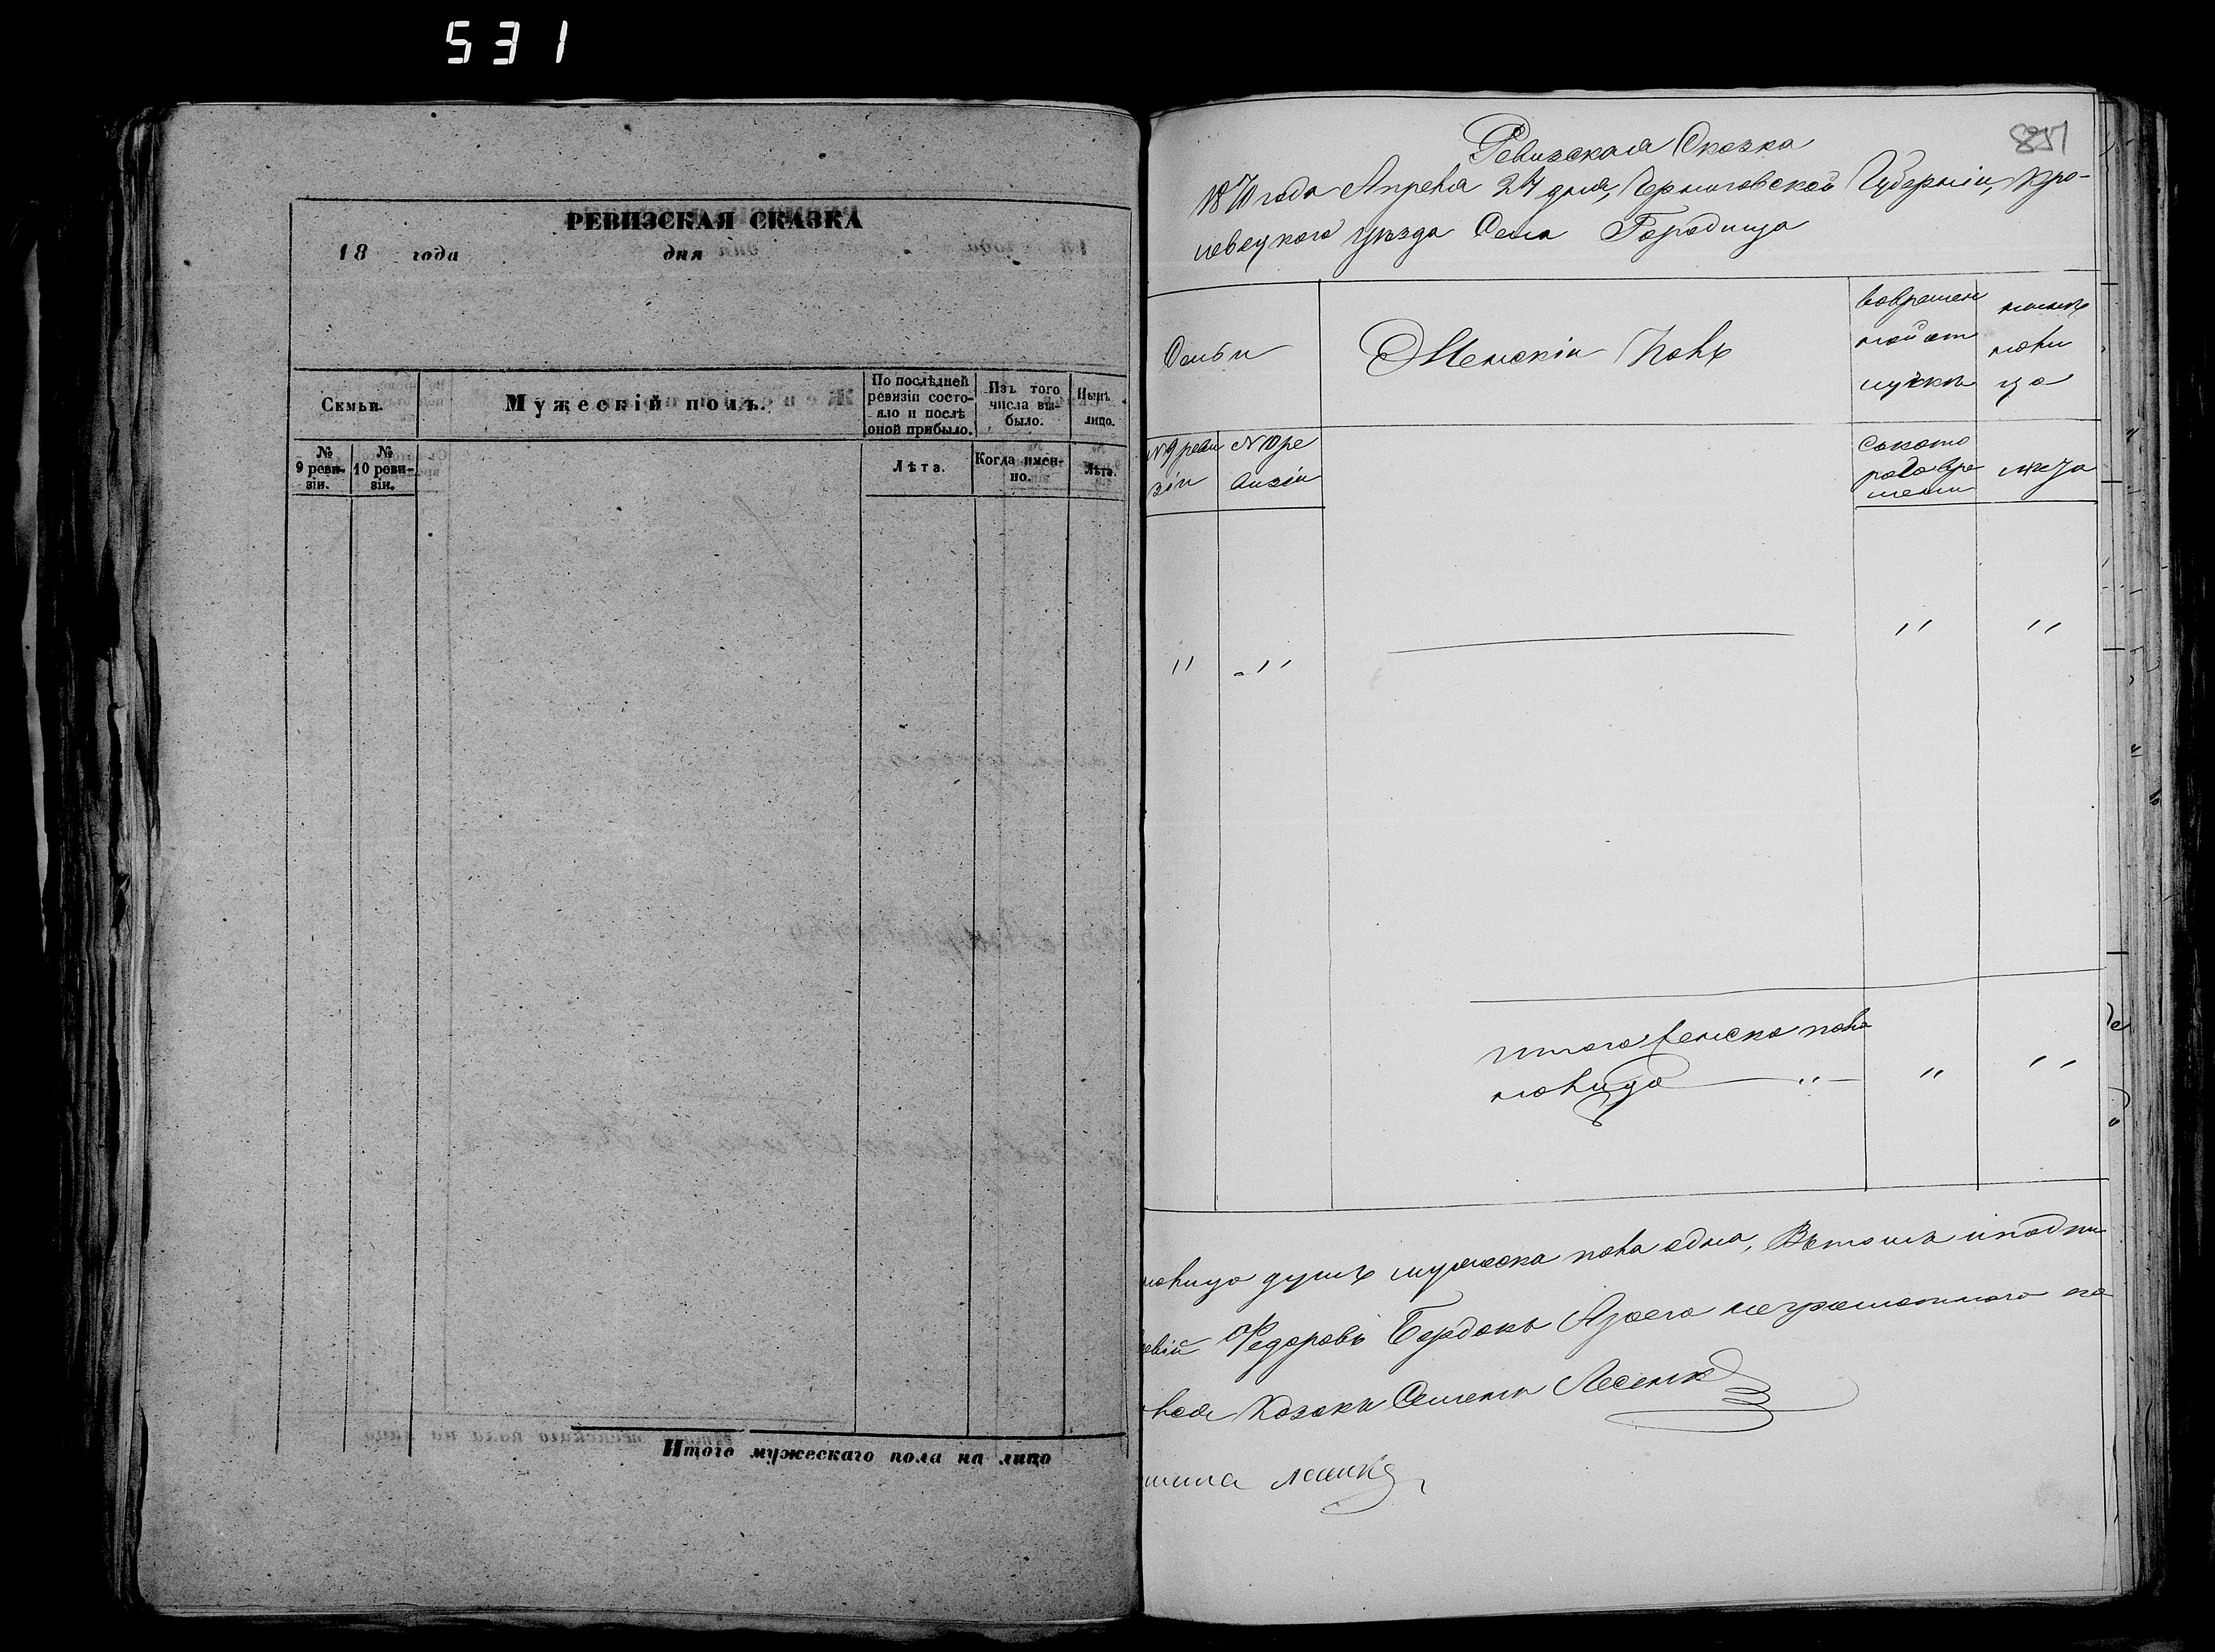 531
РЕВИЗСКАЯ СКАЗКА
18 года дня
Семьи.
Мужескій полъ.
По послѣдней ревизіи состо-
яло и послѣ
оной прибыло.
Изъ того
числа вы-
было.
Нынѣ
лицо.
№
9 реви-
зіи.
№
10 реви-
зіи.
Лѣта.
Когда имен-
но.
Лѣта.
Итого мужескаго пола на лицо
851
Ревизская Сказка
1870 года Апреля 27 дня, Черниговской Губерніи, Кро-
левецкого уѣзда Села Городища
Семьи
Женскій Полъ
вовремен
ной от
лучкѣ
ныне
нали
цо
№ 9 реви
зіи
№ 10 ре
визіи
Сткото
радо вре
мени
лѣта
" " " "
Итого женска пола
налицо " " "
налицо душъ мужеска пола одна, Въ томъ и подпи
Федоровъ Бардакъ Аза его неграмотного по
Козакъ Семенъ Лесенко